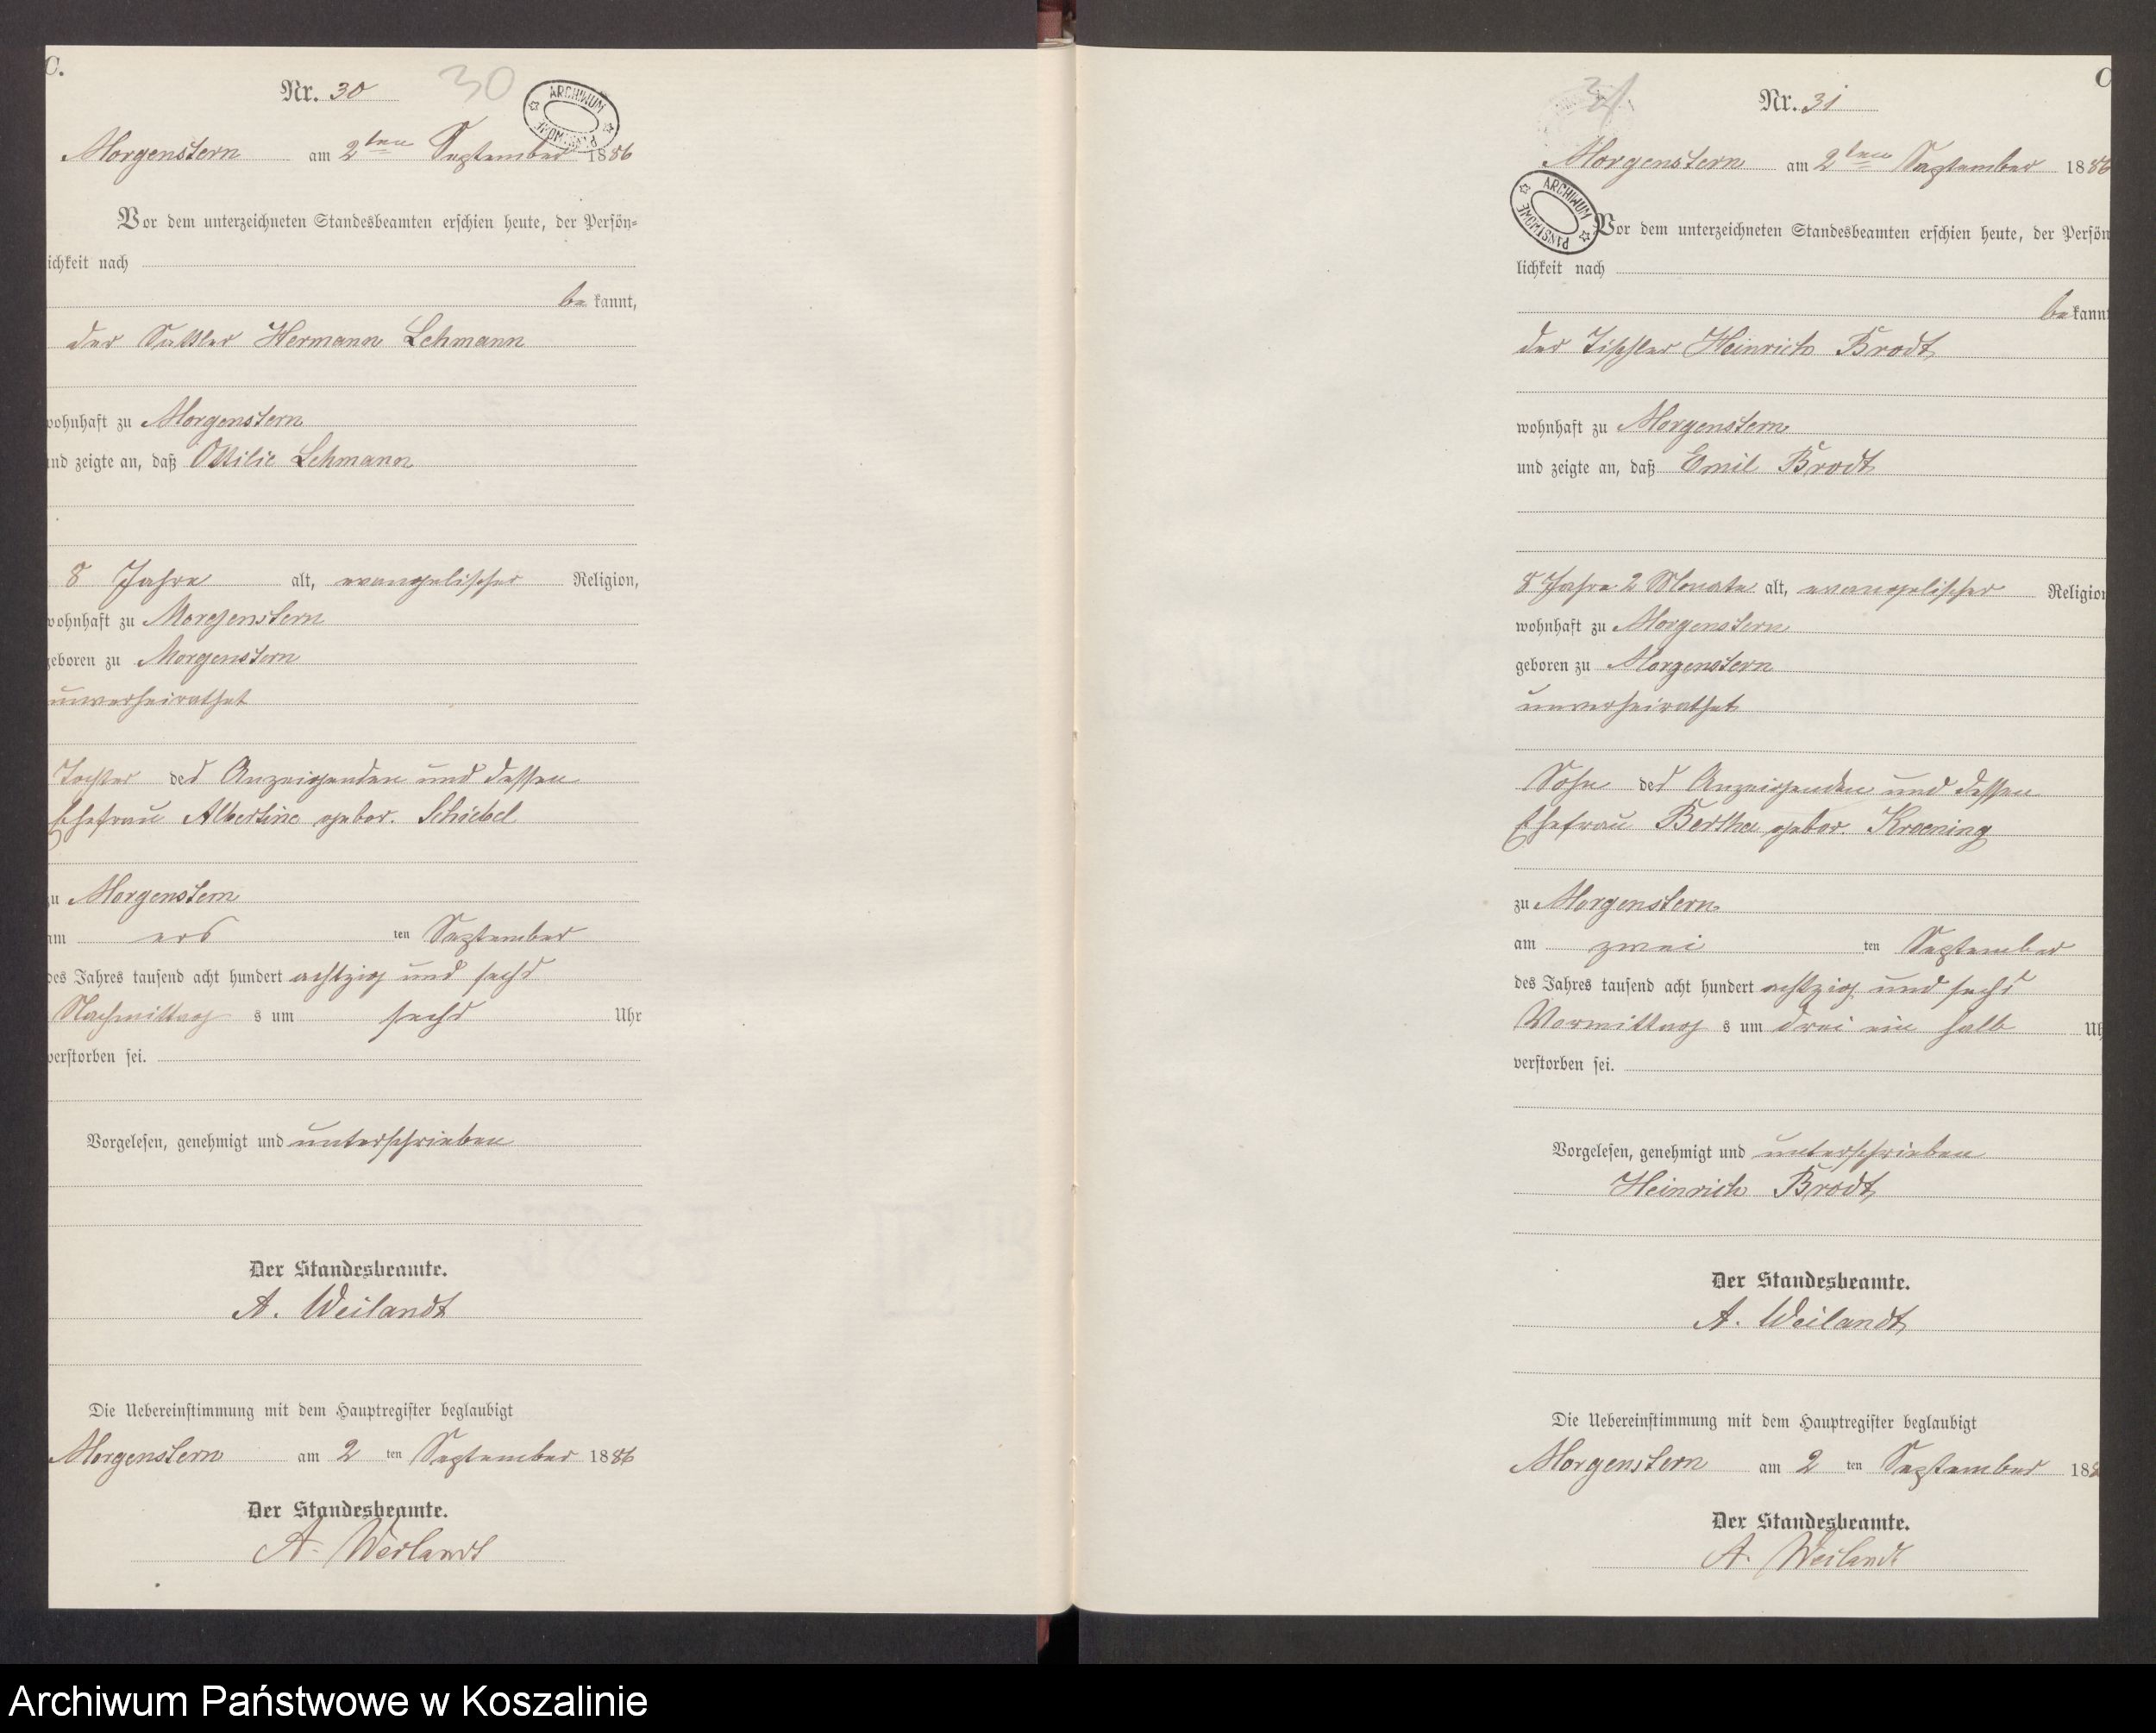 C.
Nr. 30
30
ARCHIWUM PAŃSTWOWE
Morgenstern am 2ten September 1886
Vor dem unterzeichneten Standesbeamten erschien heute, der Persön-
lichkeit nach
be kannt,
der Sattler Hermann Lehmann
wohnhaft zu Morgenstern
und zeigte an, daß Ottilie Lehmann
8 Jahre alt, evangelischer Religion,
wohnhaft zu Morgenstern
geboren zu Morgenstern
unverheirathet
Tochter des Anzeigenden und dessen
Ehefrau Albertine gebor.
zu Morgenstern
am ers ten September
des Jahres tausend acht hundert achtzig und sechs
Nachmittag s um sechs Uhr
verstorben sei.
Vorgelesen, genehmigt und unterschrieben
Der Standesbeamte.
A. Weilandt
Die Uebereinstimmung mit dem Hauptregister beglaubigt
Morgenstern am 2 ten September 1886
Der Standesbeamte.
A. Weilandt
C
Nr. 31
31
Morgenstern am 2ten September 1886
ARCHIWUM PAŃSTWOWE
Vor dem unterzeichneten Standesbeamten erschien heute, der Persön
lichkeit nach
be kannt
der Tischler Heinrich Brodt
wohnhaft zu Morgenstern
und zeigte an, daß Emil Brodt
8 Jahre 2 Monate alt, evangelischer Religion
wohnhaft zu Morgenstern
geboren zu Morgenstern
unverheirathet
Sohn des Anzeigenden und dessen
Ehefrau Bertha gebor. Kroening
zu Morgenstern
am zwei ten September
des Jahres tausend acht hundert achtzig und sechs
Vormittag s um drei ein halb Uh
verstorben sei.
Vorgelesen, genehmigt und unterschrieben
Heinrich Brodt
Der Standesbeamte.
A. Weilandt
Die Uebereinstimmung mit dem Hauptregister beglaubigt
Morgenstern am 2 ten September 188
Der Standesbeamte.
A. Weilandt
Archiwum Państwowe w Koszalinie